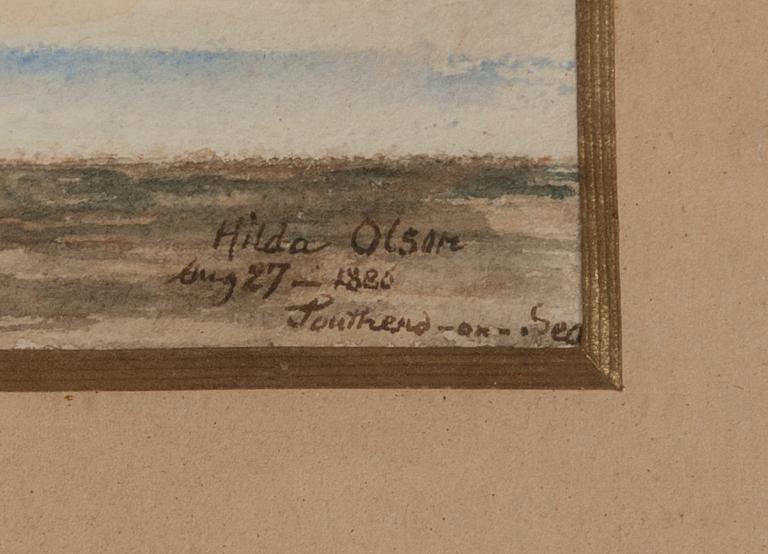 Hilda Olson
Aug 27 - 1886
Southend-on-Sea